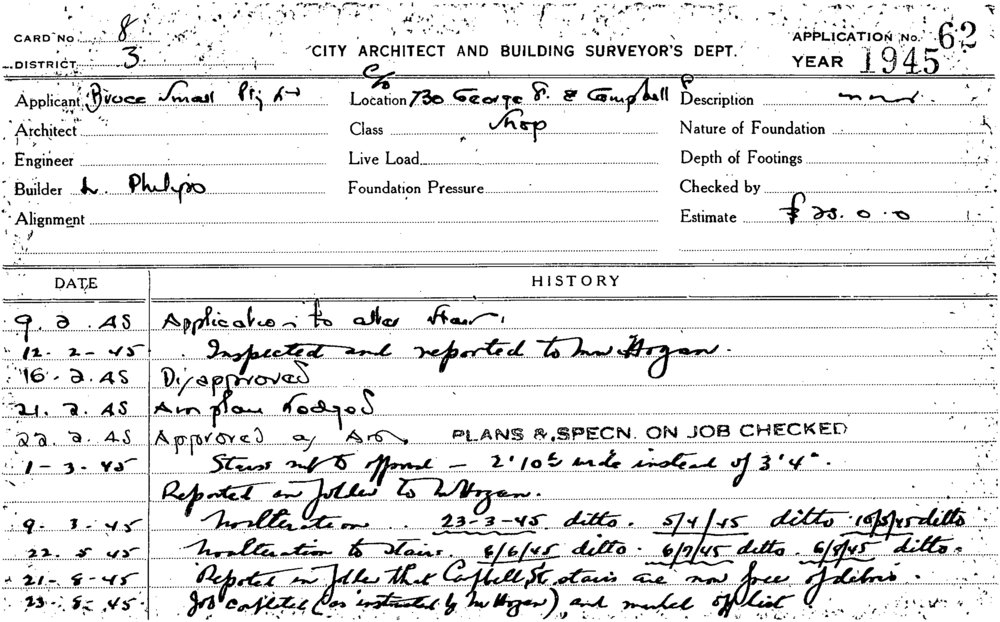 CARD No 8
DISTRICT 3
CITY ARCHITECT AND BUILDING SURVEYOR'S DEPT.
APPLICATION No. 62
YEAR 1945
Applicant Bruce Small Pty Ltd
Location c/o 730 George St. & Campbell St
Description
Architect
Class Shop
Nature of Foundation
Engineer
Live Load
Depth of Footings
Builder L. Philips
Foundation Pressure
Checked by
Alignment
Estimate £ 25. 0. 0
DATE HISTORY
9. 2. 45 Application to alter stair.
12. 2. 45 Inspected and reported to Mr Hogan.
16. 2. 45 Disapproved
21. 2. 45 Am plan Lodged
22. 2. 45 Approved as Am PLANS & SPECN. ON JOB CHECKED
1-3-45 Stairs not to approval - 2'10" wide instead of 3'4".
Reported in folder to Mr Hogan.
9. 3. 45 No alteration .. 23-3-45 ditto. 5/4/45 ditto 10/5/45 ditto
22. 5 45 No alteration to stairs. 6/6/45 ditto. 6/7/45 ditto. 6/8/45 ditto.
21-8-45 Reported in folder that Campbell St. stairs are now free of debris.
23. 8. 45. Job completed (as instructed by Mr Hogan) and marked off list.